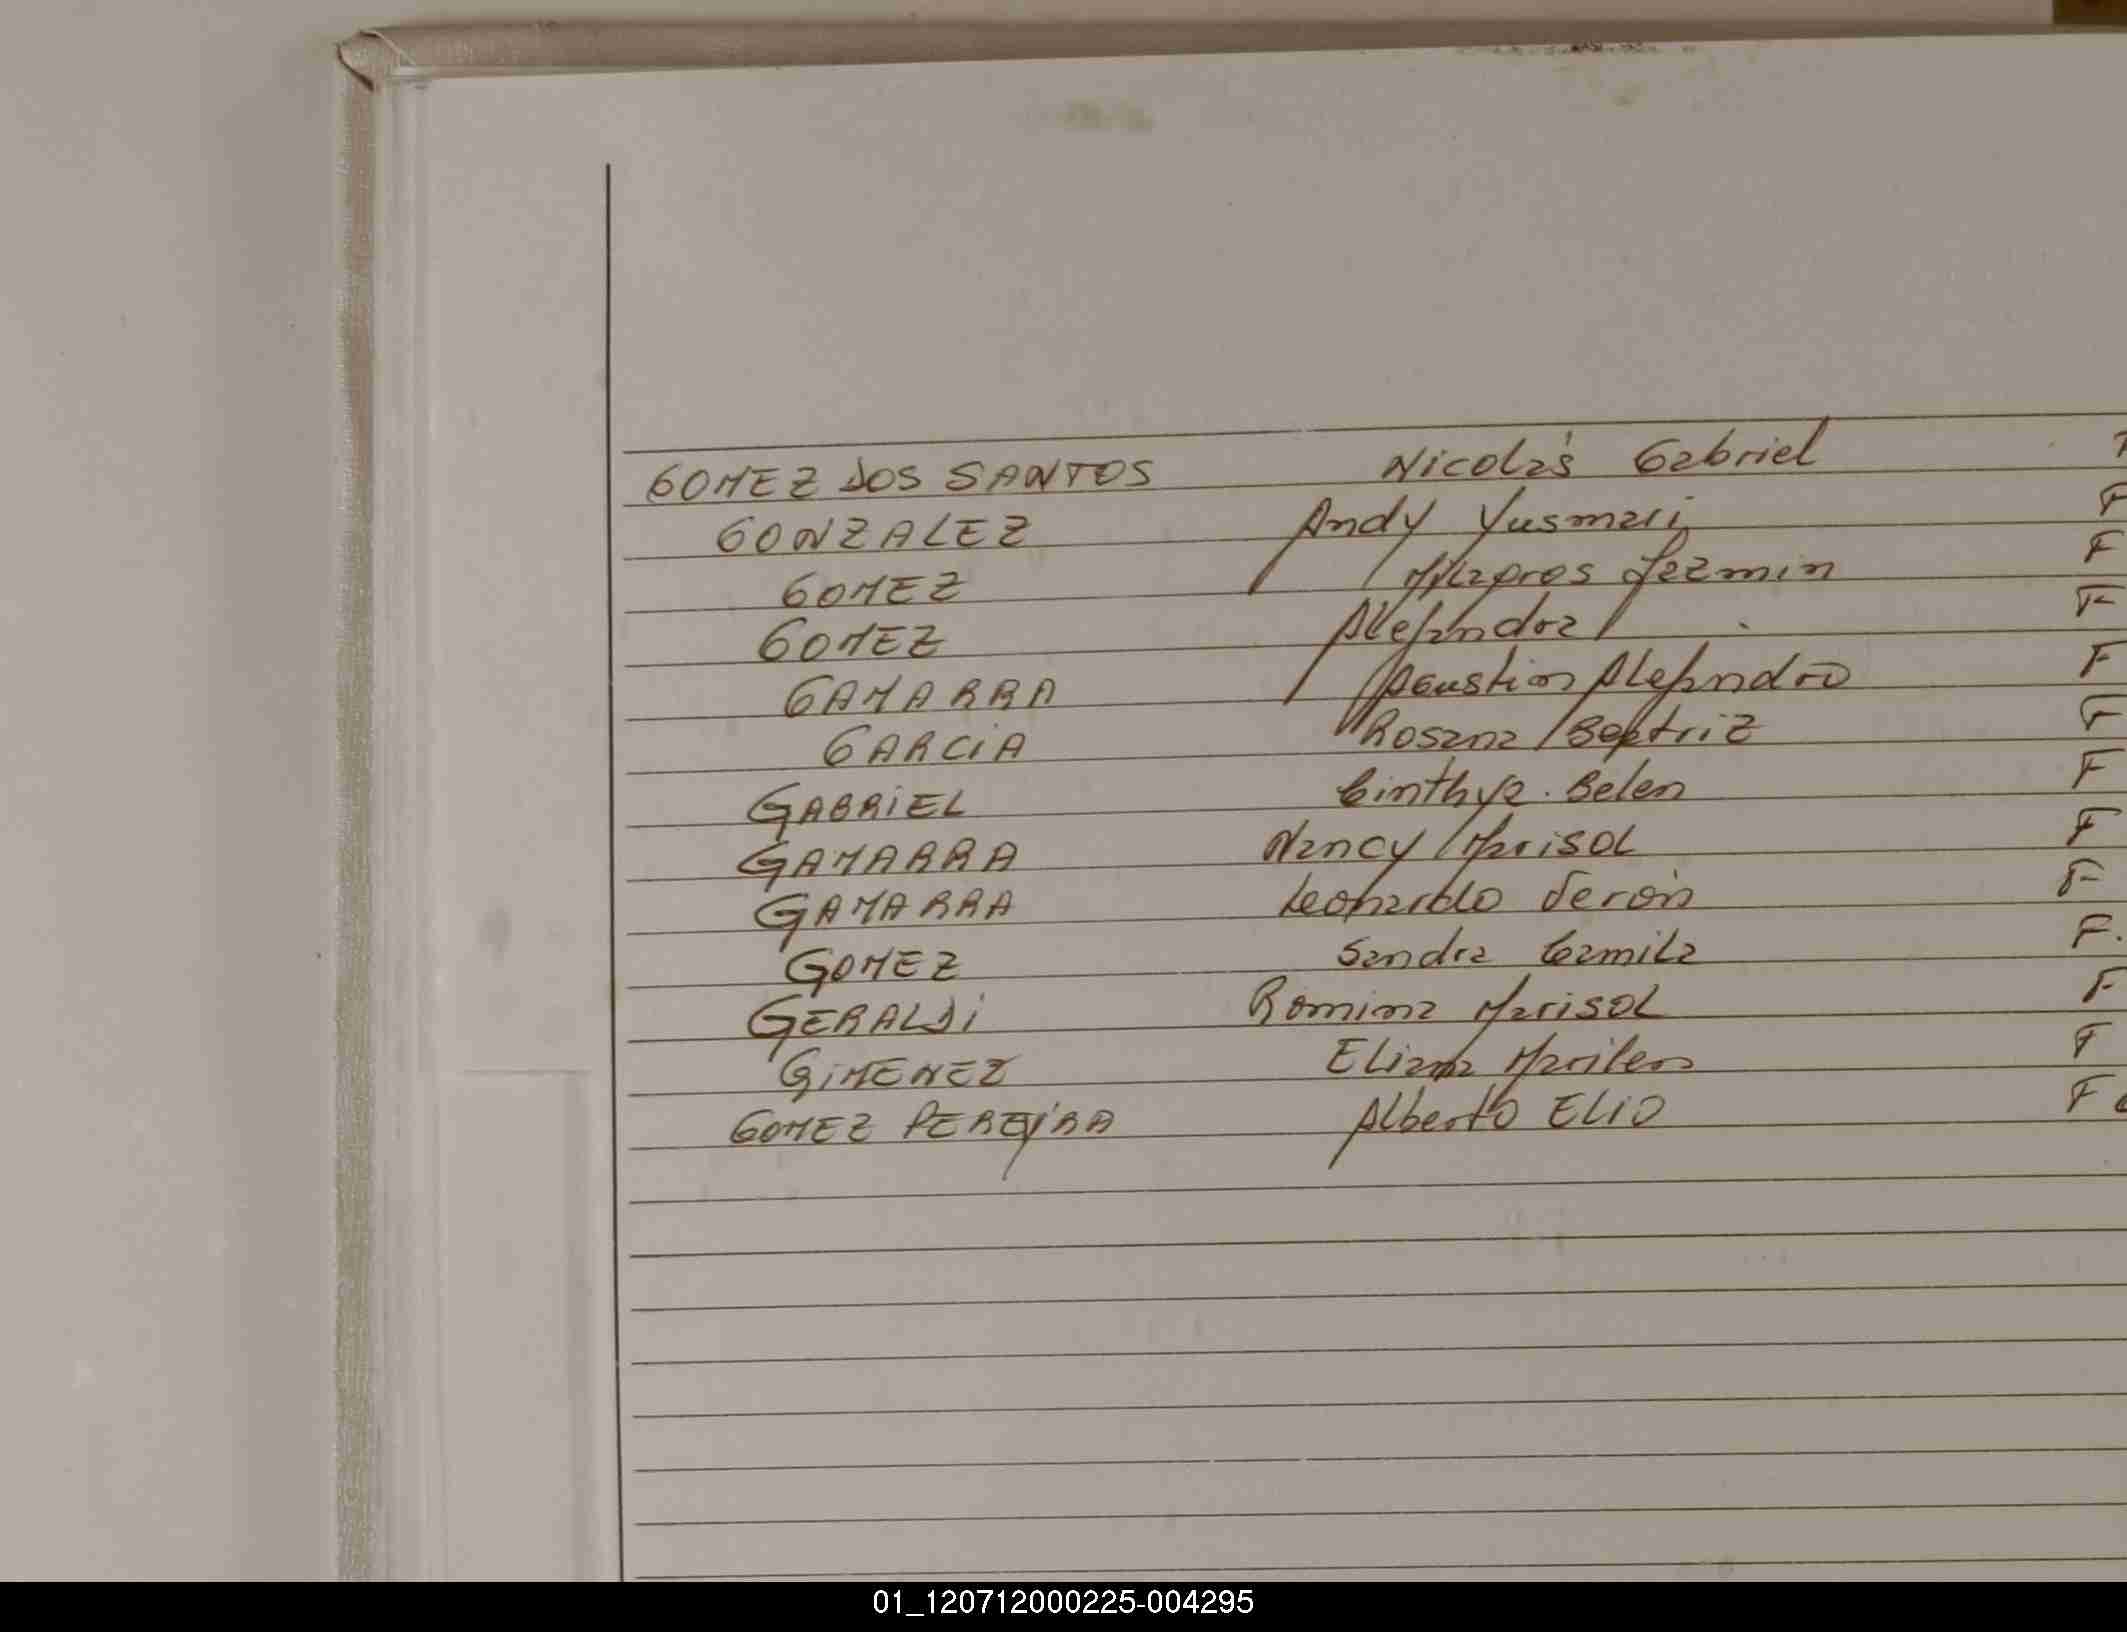 GOMEZ DOS SANTOS Nicolás Gabriel
GONZALEZ Andy Yusmari F
GOMEZ Milagros Jazmin F
GOMEZ Alejandra F
GAMARRA Agustin Alejandro F
GARCIA Rosana Beatriz F
GABRIEL Cinthya Belen F
GAMARRA Nancy Marisol F
GAMARRA Leonardo Terón F
GOMEZ Sandra Camila F.
GERALDI Romina Marisol F
GIMENEZ Eliana Marilen F
GOMEZ PEREJRA Alberto ELIO F
01_120712000225-004295